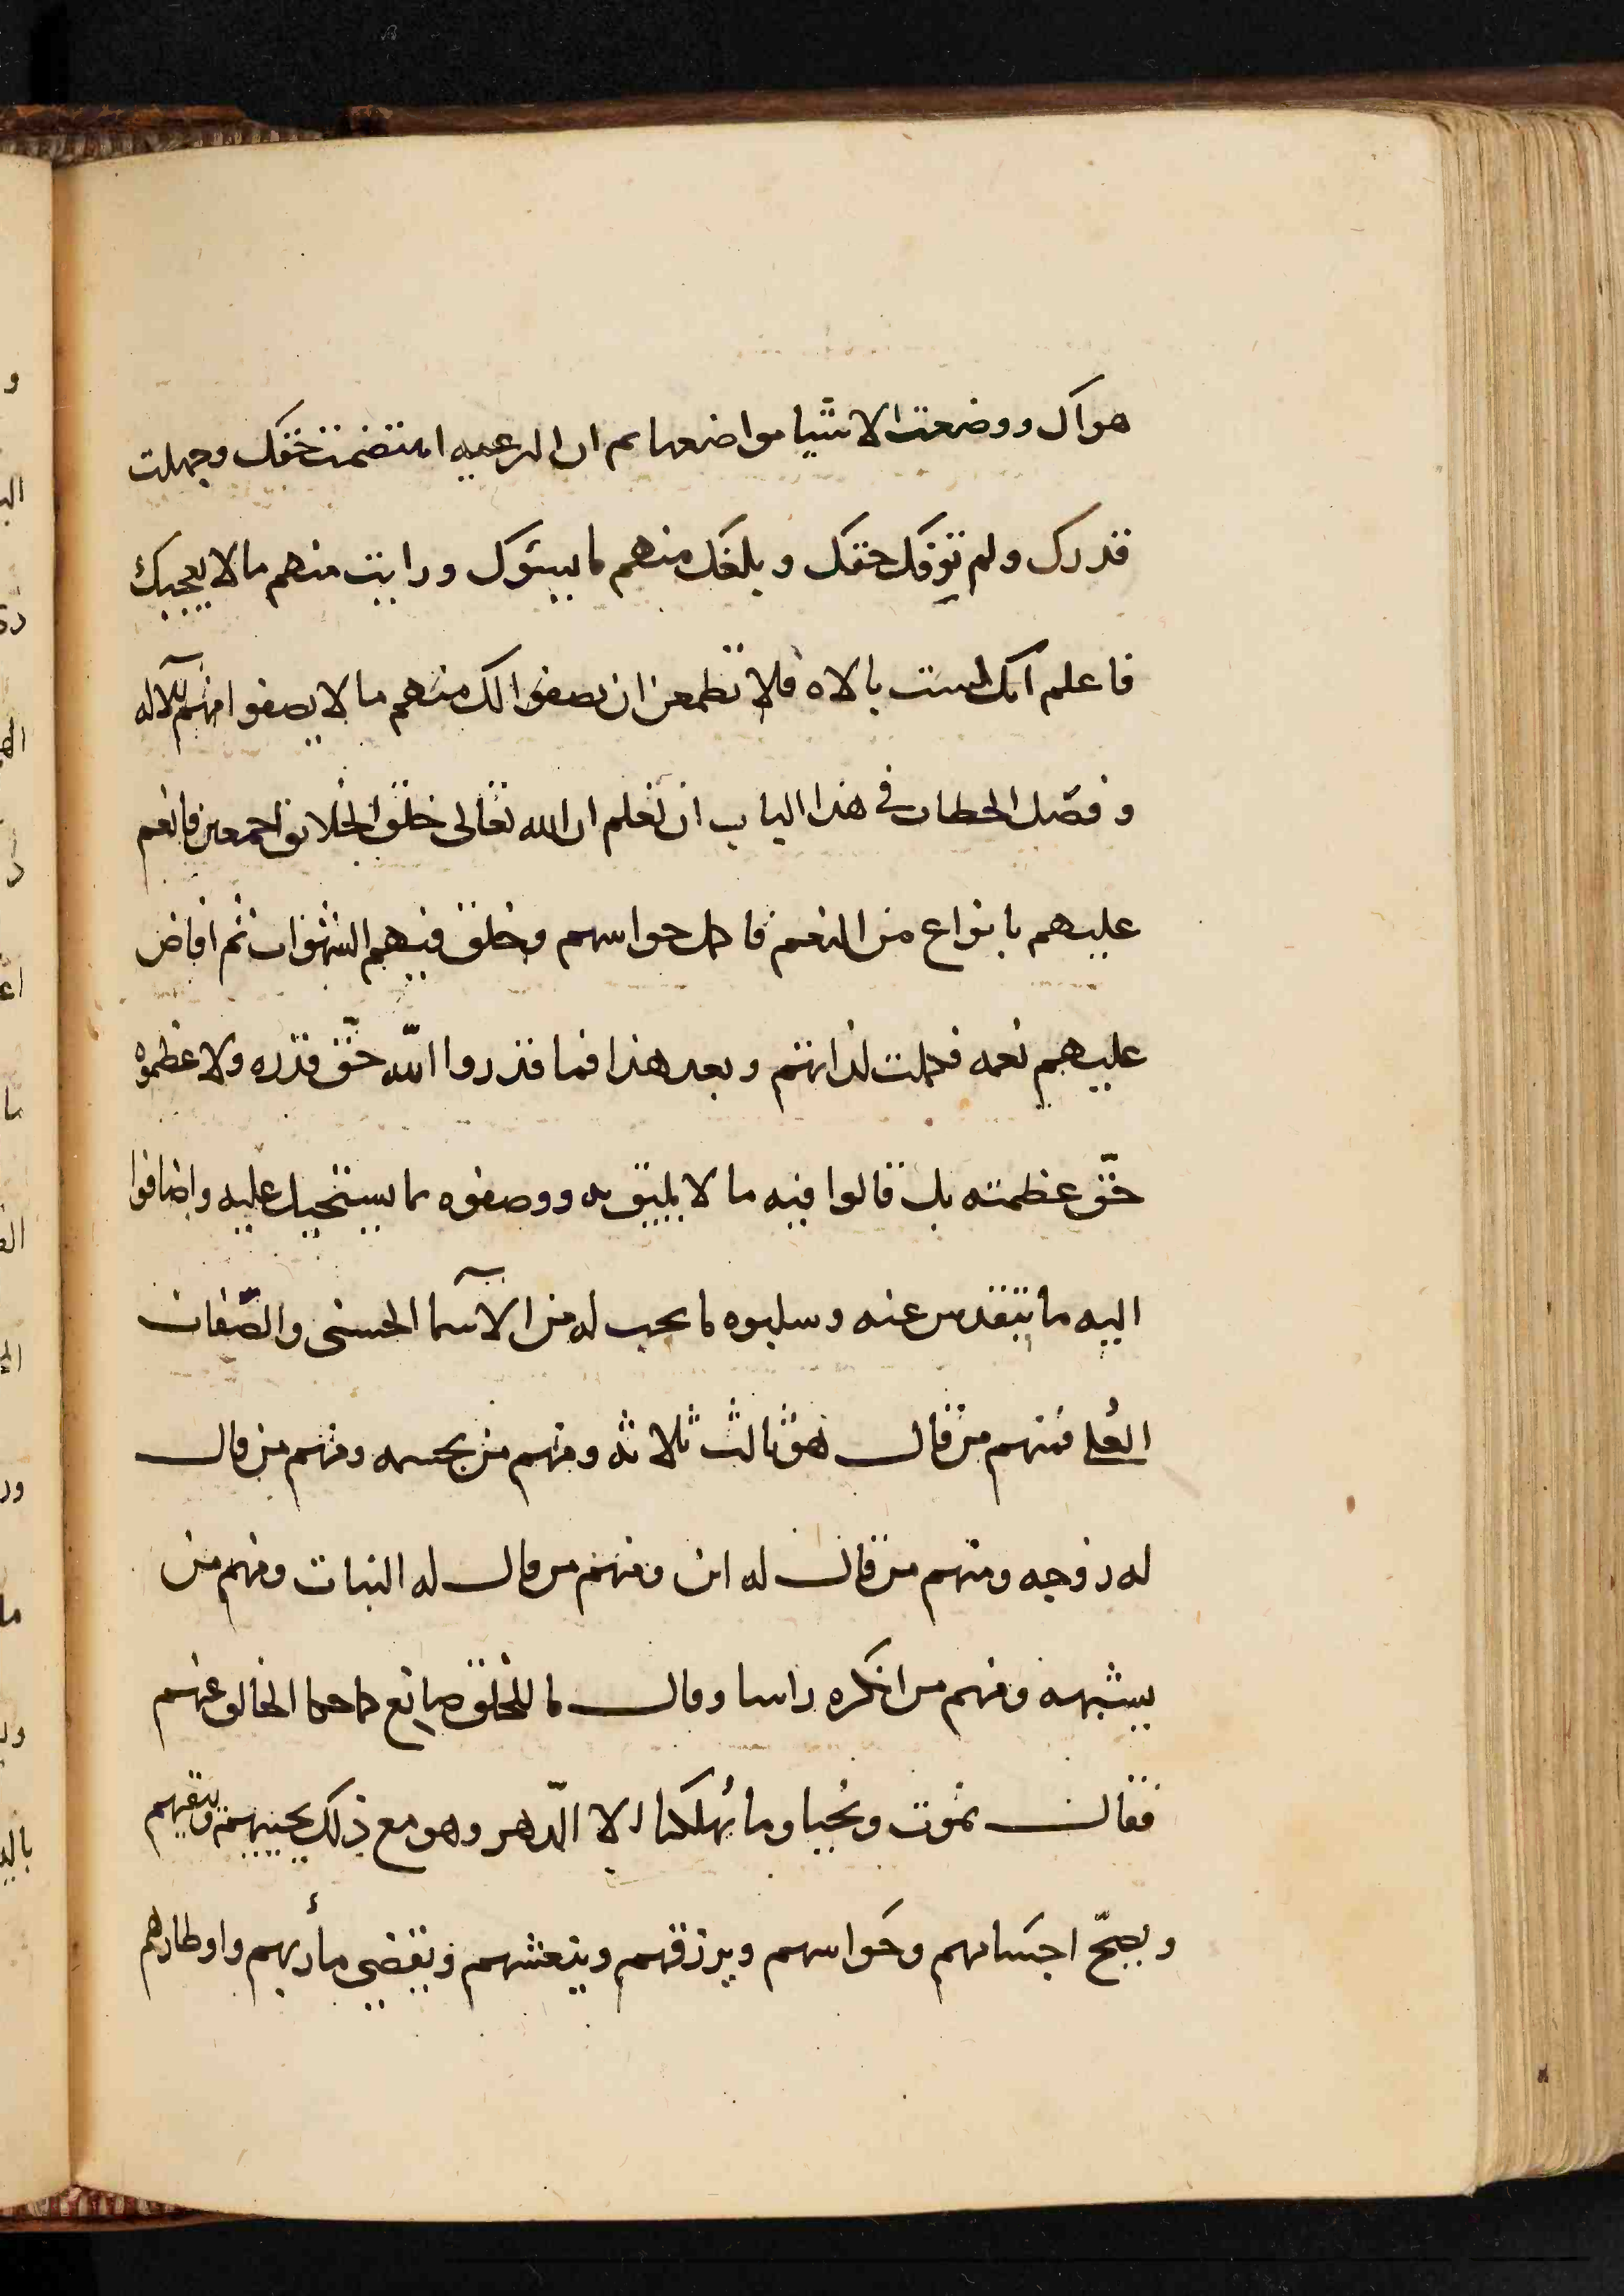 هواك ووضعت الاشيا مواضعها ثم ان الرعيه اهتضمت حقك وجهلت
قدرك ولم توفك حقك وبلغك منهم ما يسؤك ورايت منهم مالا يعجبك
فاعلم انك لست بالاه فلا تطمعن ان يصفوا لك منهم ما لا يصفوا منهم للاله
وفصل الخطاب في هذا الباب ان تعلم ان الله تعالى خلق الخلائق اجمعين فانعم
عليهم بانواع من النعم فاكمل حواسهم وخلق فيهم الشهوات ثم افاض
عليهم نعمه فكملت لذاتهم وبعد هذا فما قدروا الله حق قدره ولا عظموه
حق عظمته بل قالوا فيه ما لا يليق به ووصفوه بما يستحيل عليه واضافوا
اليه ما يتقدس عنه وسلبوه ما يجب له من الاسما الحسنى والصفات
العُلى فمنهم من قال هو ثالث ثلاثه ومنهم من يجسمه ومنهم من قال
له زوجه ومنهم من قال له ابن ومنهم من قال له البنات ومنهم من
يشبهه ومنهم من انكره راسا وقال ما للخلق صانع كما حكا الخالق عنهم
فقال نموت ونحيا وما يُهلكنا الا الدّهر وهو مع ذلك يحييهم ويبقيهم
ويصحّ اجسامهم وحواسهم ويرزقهم وينعشهم ويقضي مأربهم واوطارهم